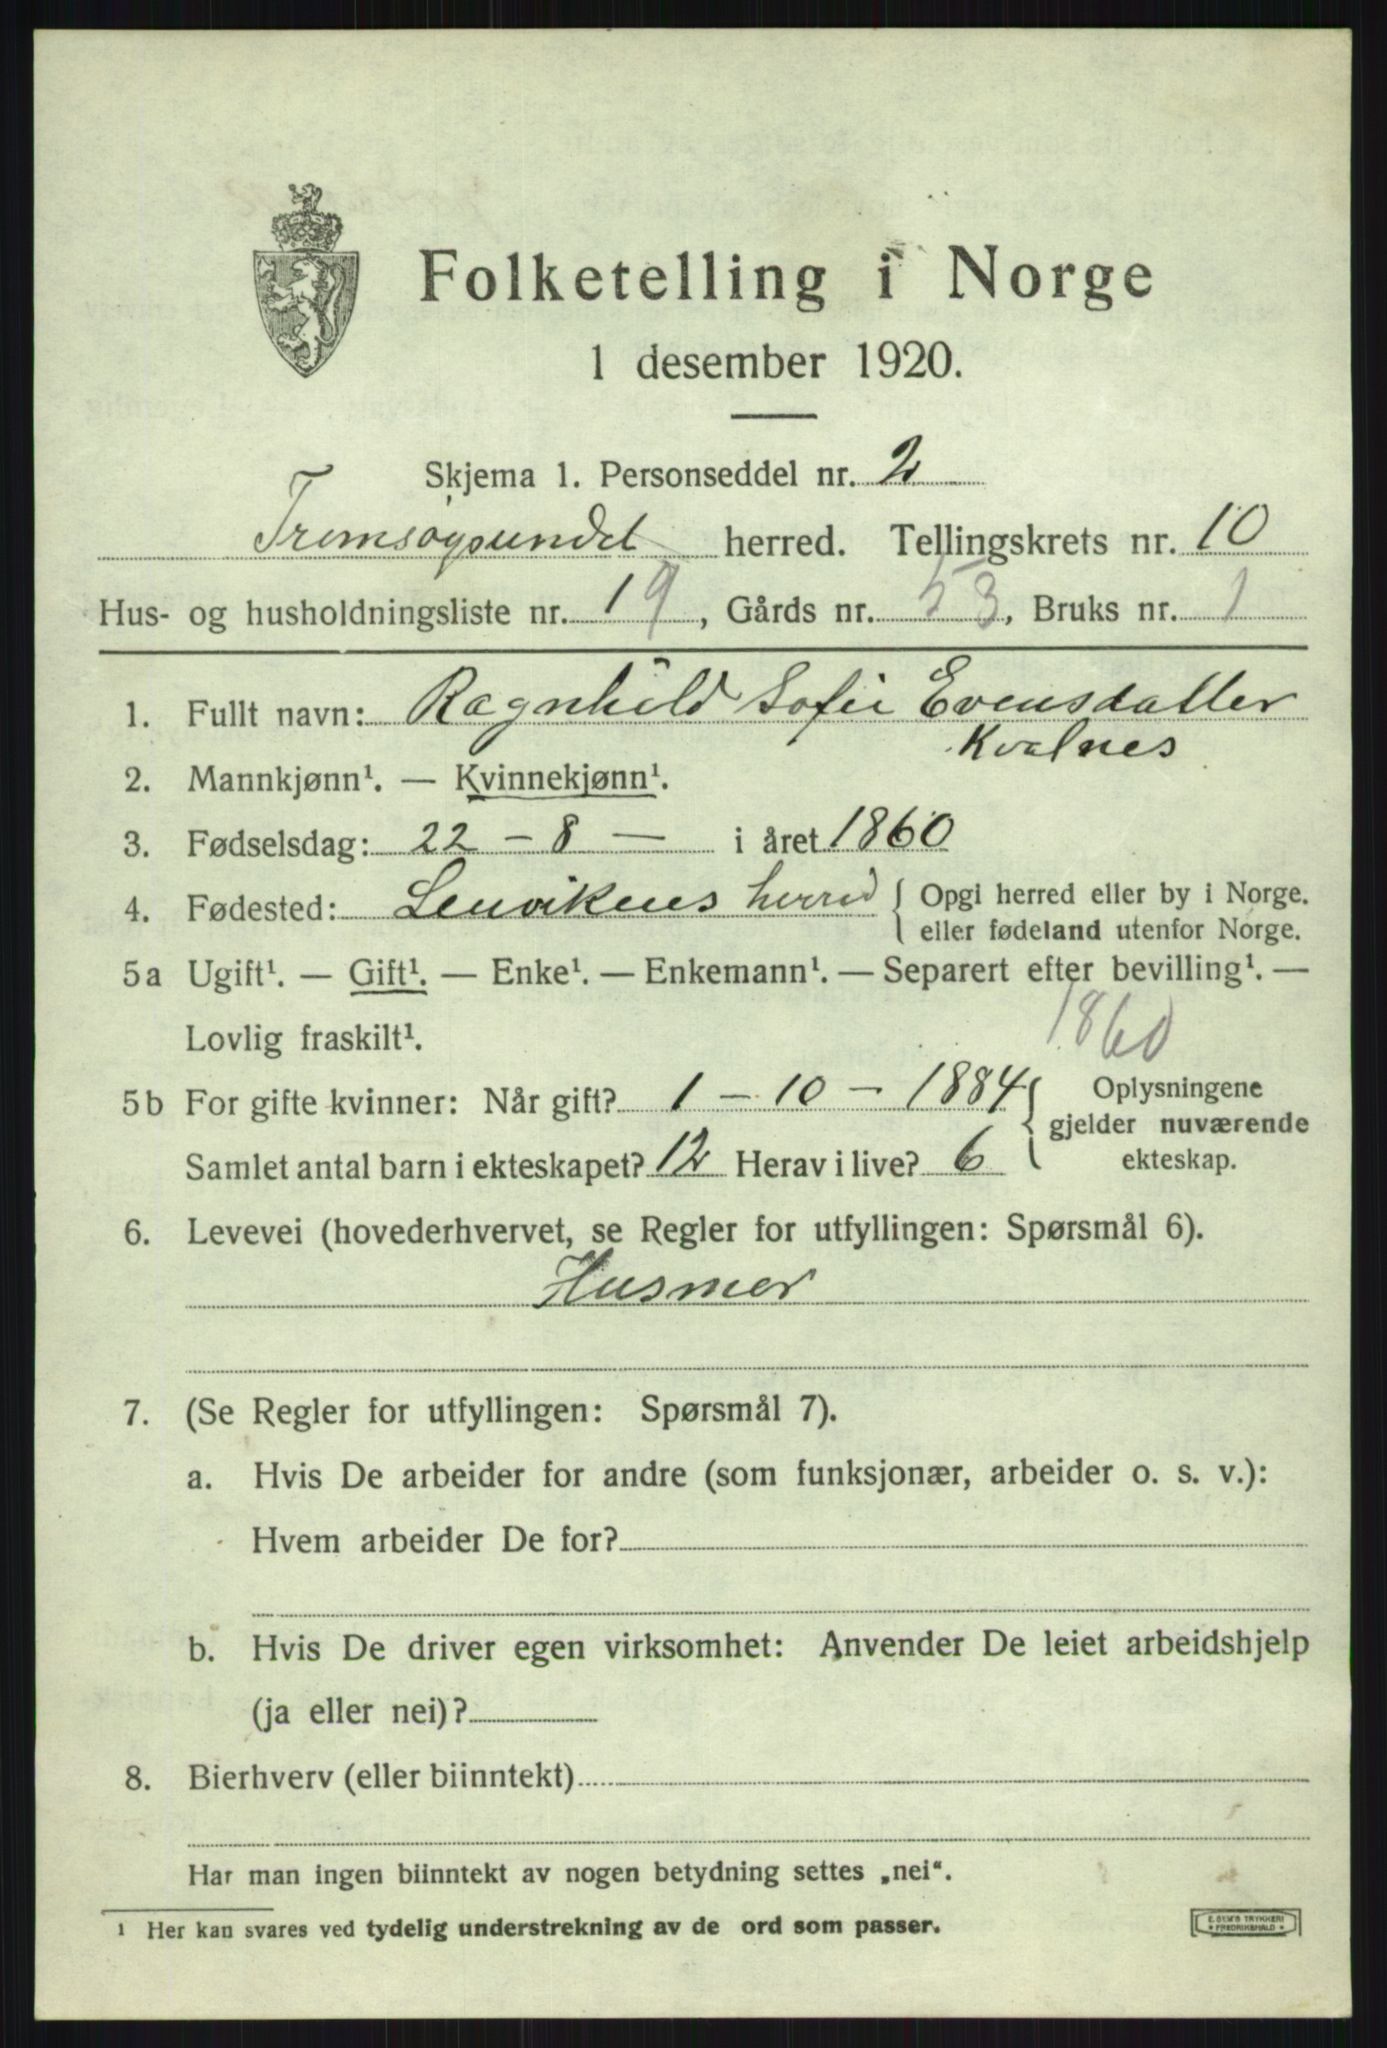 Folketelling i Norge
1 desember 1920.
Skjema 1. Personseddel nr. 2
Tromsøysundet herred. Tellingskrets nr. 10
Hus- og husholdningsliste nr. 19, Gårds nr. 53, Bruks nr. 1
1. Fullt navn: Ragnhild Sofie Evensdatter
Kvalnes
2. Mannkjønn¹. — Kvinnekjønn¹.
3. Fødselsdag: 22 – 8 — i året 1860
4. Fødested: Lenvikens herred { Opgi herred eller by i Norge.
eller fødeland utenfor Norge.
5a Ugift¹. — Gift¹. — Enke¹. — Enkemann¹. — Separert efter bevilling¹. —
Lovlig fraskilt¹.
1860
5b For gifte kvinner: Når gift? 1 – 10 – 1884 { Oplysningene
gjelder nuværende
Samlet antal barn i ekteskapet? 12 Herav i live? 6 ekteskap.
6. Levevei (hovederhvervet, se Regler for utfyllingen: Spørsmål 6).
Husmor
7. (Se Regler for utfyllingen: Spørsmål 7).
a. Hvis De arbeider for andre (som funksjonær, arbeider o. s. v.):
Hvem arbeider De for?
b. Hvis De driver egen virksomhet: Anvender De leiet arbeidshjelp
(ja eller nei)?
8. Bierhverv (eller biinntekt)
Har man ingen biinntekt av nogen betydning settes „nei“.
¹ Her kan svares ved tydelig understrekning av de ord som passer.
E. SEM'S TRYKKERI
* FREDRIKSHALD *